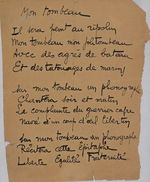 Mon tombeau
Il sera peint au ripolin
Mon tombeau mon
Avec des agrès de bateau
Et des tatouages de marin
Sur mon tombeau un phonographe
Chantera soir et matin
La complainte du guerrier
d'un
Sur mon tombeau un phonographe
Récitera cette épitaphe
Liberté Egalité Fraternité